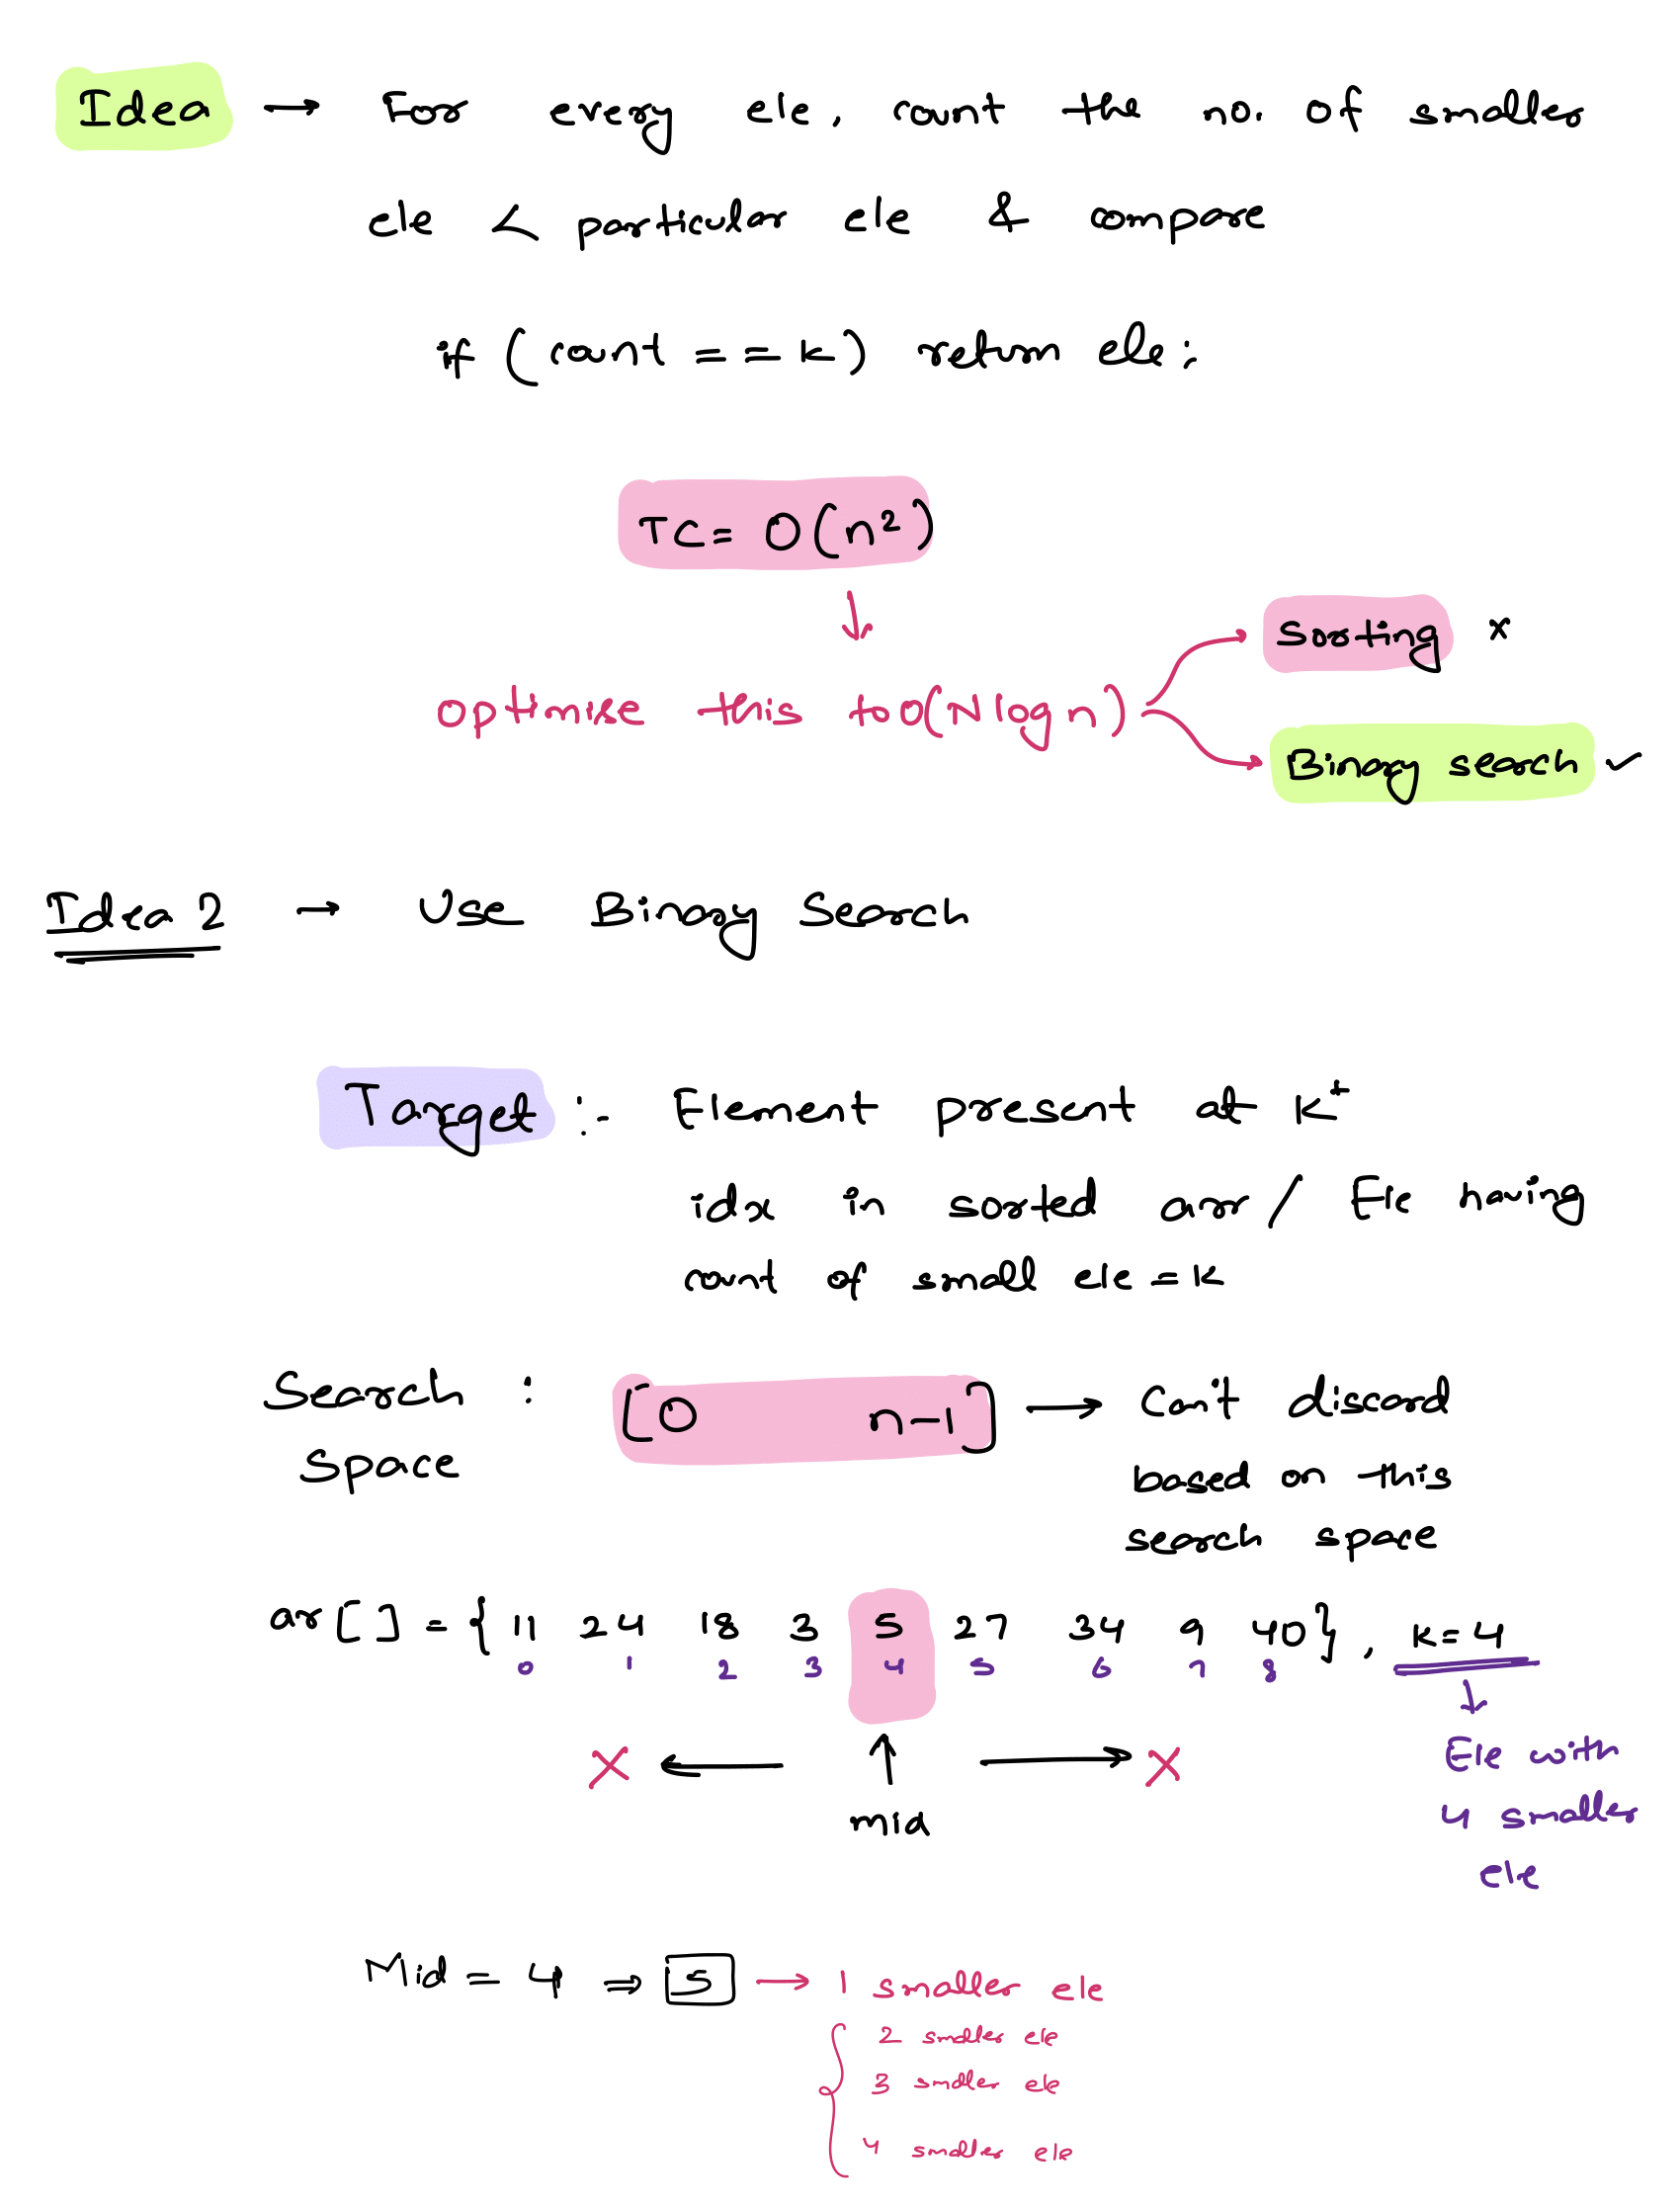 Idea → For every ele, count the no. of smaller
ele < particular ele & compare
if (count == k) return ele;
TC = O(n²)
↓
optimise this to O(Nlogn)
Sorting x
Binary search ✓
Idea 2 → Use Binary Search
Target :- Element present at K+
idx in sorted arr / Ele having
count of small ele = k
Search Space : [0 n-1] → Can't discard
based on this
search space
ar[] = { 11 24 18 3 5 27 34 9 40 }, k=4
0 1 2 3 4 5 6 7 8
↓
X ← ↑ → X
mid
Ele with
4 smaller
ele
Mid = 4 ⇒ 5 → 1 smaller ele
2 smaller ele
3 smaller ele
4 smaller ele